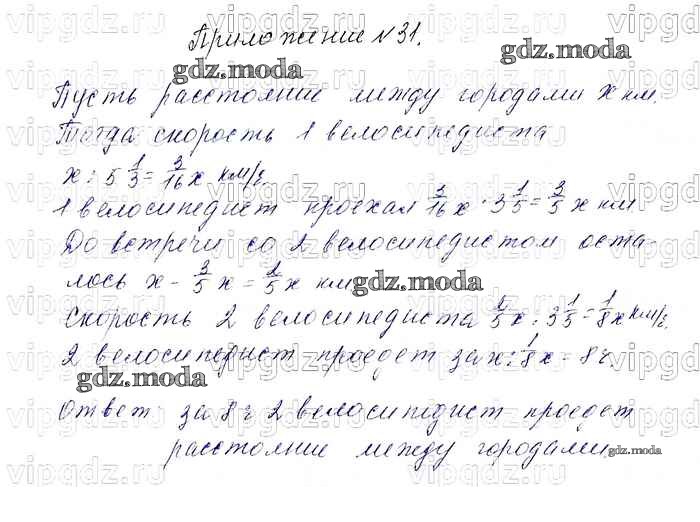 Приложение №31.
Пусть расстояние между городами x км.
Тогда скорость 1 велосипедиста
x : 5 1/3 = 3/16 x км/ч.
1 велосипедист проехал 3/16 x · 3 1/5 = 3/5 x км
До встречи со 2 велосипедистом оста-
лось x - 3/5 x = 2/5 x км
Скорость 2 велосипедиста 2/5 x : 3 1/5 = 1/8 x км/ч.
2 велосипедист проедет за x : 1/8 x = 8 ч.
Ответ за 8 ч 2 велосипедист проедет
расстояние между городами.
gdz.moda
gdz.moda
gdz.moda
gdz.moda
gdz.moda
vipgdz.ru